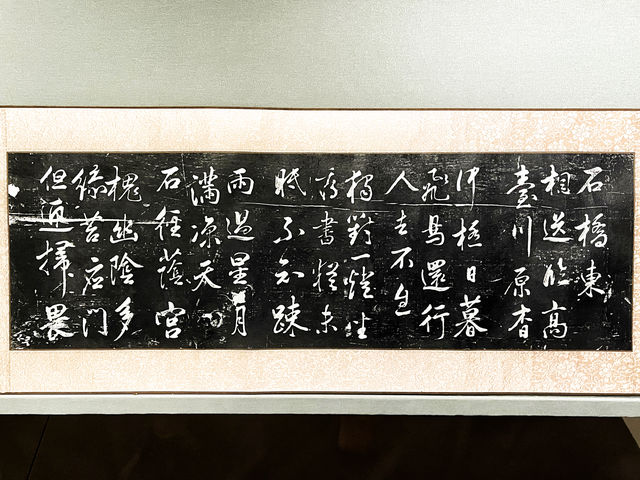 石橋東
相送臨高
臺川原杳
何極日暮
飛鳥還行
人去不息
獨對一燈坐
書未
眠不知疎
雨過星月
滿涼天
石徑蔭宮
槐幽陰多
綠苔應門
但迎掃畏